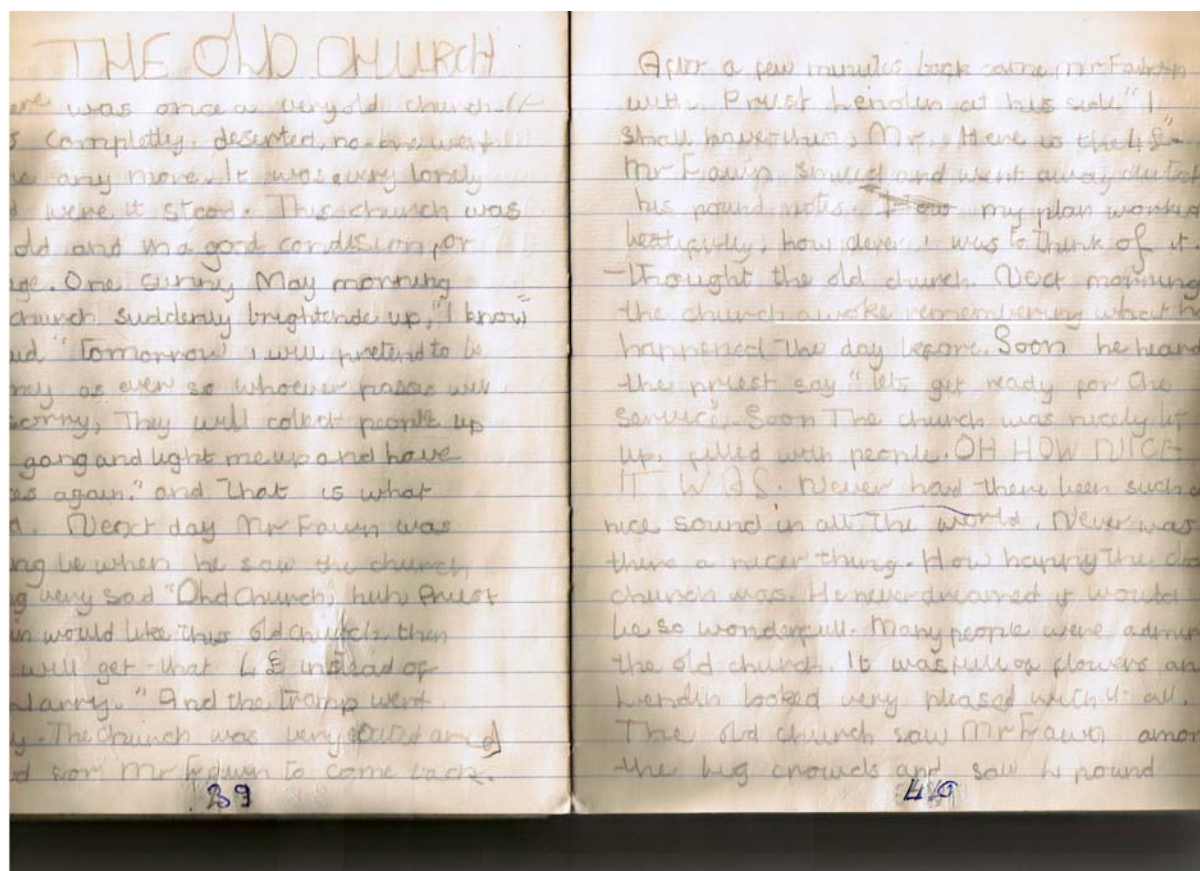 THE OLD CHURCH
ere was once a very old church. It
s completly deserted, no one went
re any more. It was every lonely
d were it stood. This church was
old and in a good condision for
age. One sunny May morning
church suddenly brightende up, "I know"
id "tomorrow I will pretend to be
ney as ever so whoever passes will
sorry, They will collect people up
gong and light me up and have
es again." and that is what
d. Next day Mr Fawn was
ng be when he saw the church
g very sad "Old Church, huh, Priest
in would like this old church then
will get that 4£ instead of
Harry." And the tramp went
y. The church was very proud and
d for Mr Fawn to come back.
39
After a few minutes back came Mr Fawn
with Priest Lendin at his side "I
shall have this, Mr. Here is the 4£"
Mr Fawn smiled and went away clutch
his pound notes. my plan worked
beatifully, how clever I was to think of it
thought the old church. Next morning
the church awoke remembering what h
happened the day before. Soon he heard
the priest say "lets get ready for the
service". Soon the church was nicely lit
up, filled with people. OH HOW NICE
IT WAS. Never had there been such a
nice sound in all the world. Never was
there a nicer thing. How happy the old
church was. He never dreamed it would
be so wonderfull. Many people were admir
the old church. It was full of flowers an
Lendin looked very pleased with it all.
The old church saw Mr Fawn amon
the big crowds and saw 4 pound
40